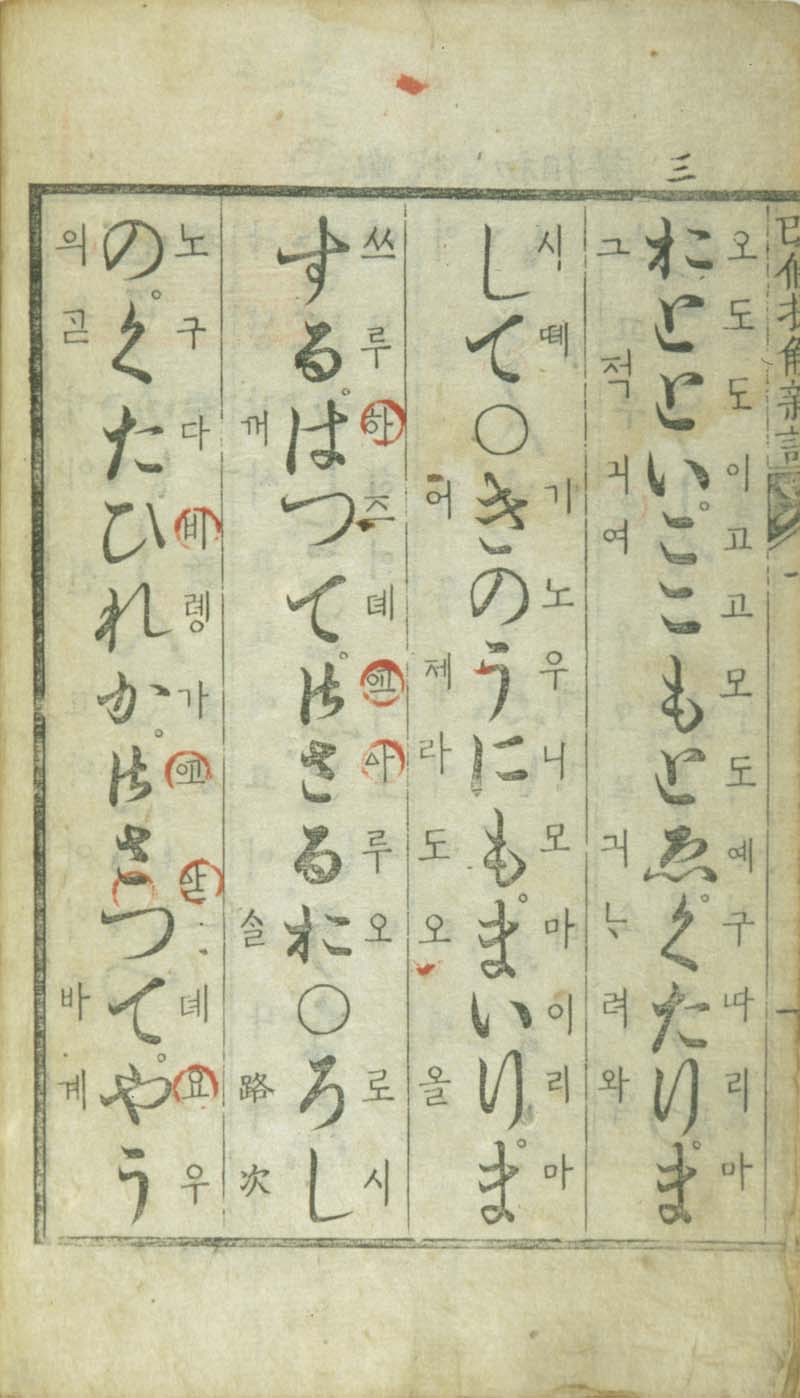 三
改修捷解新語
오도도이고고모도예구다리마
おとといここもとゑくたりま
그적긔여긔ᄂᆞ려와
시뗴기노우니모마이리마
して○きのうにもまいりま
어제라도오올
쓰루하즈뎨사루오로시
するはつて御さるお○ろし
께ᄉᆞᆯ路次
노구다비렝가산뎨요우
のくたひれか御さつてやう
의곤바계